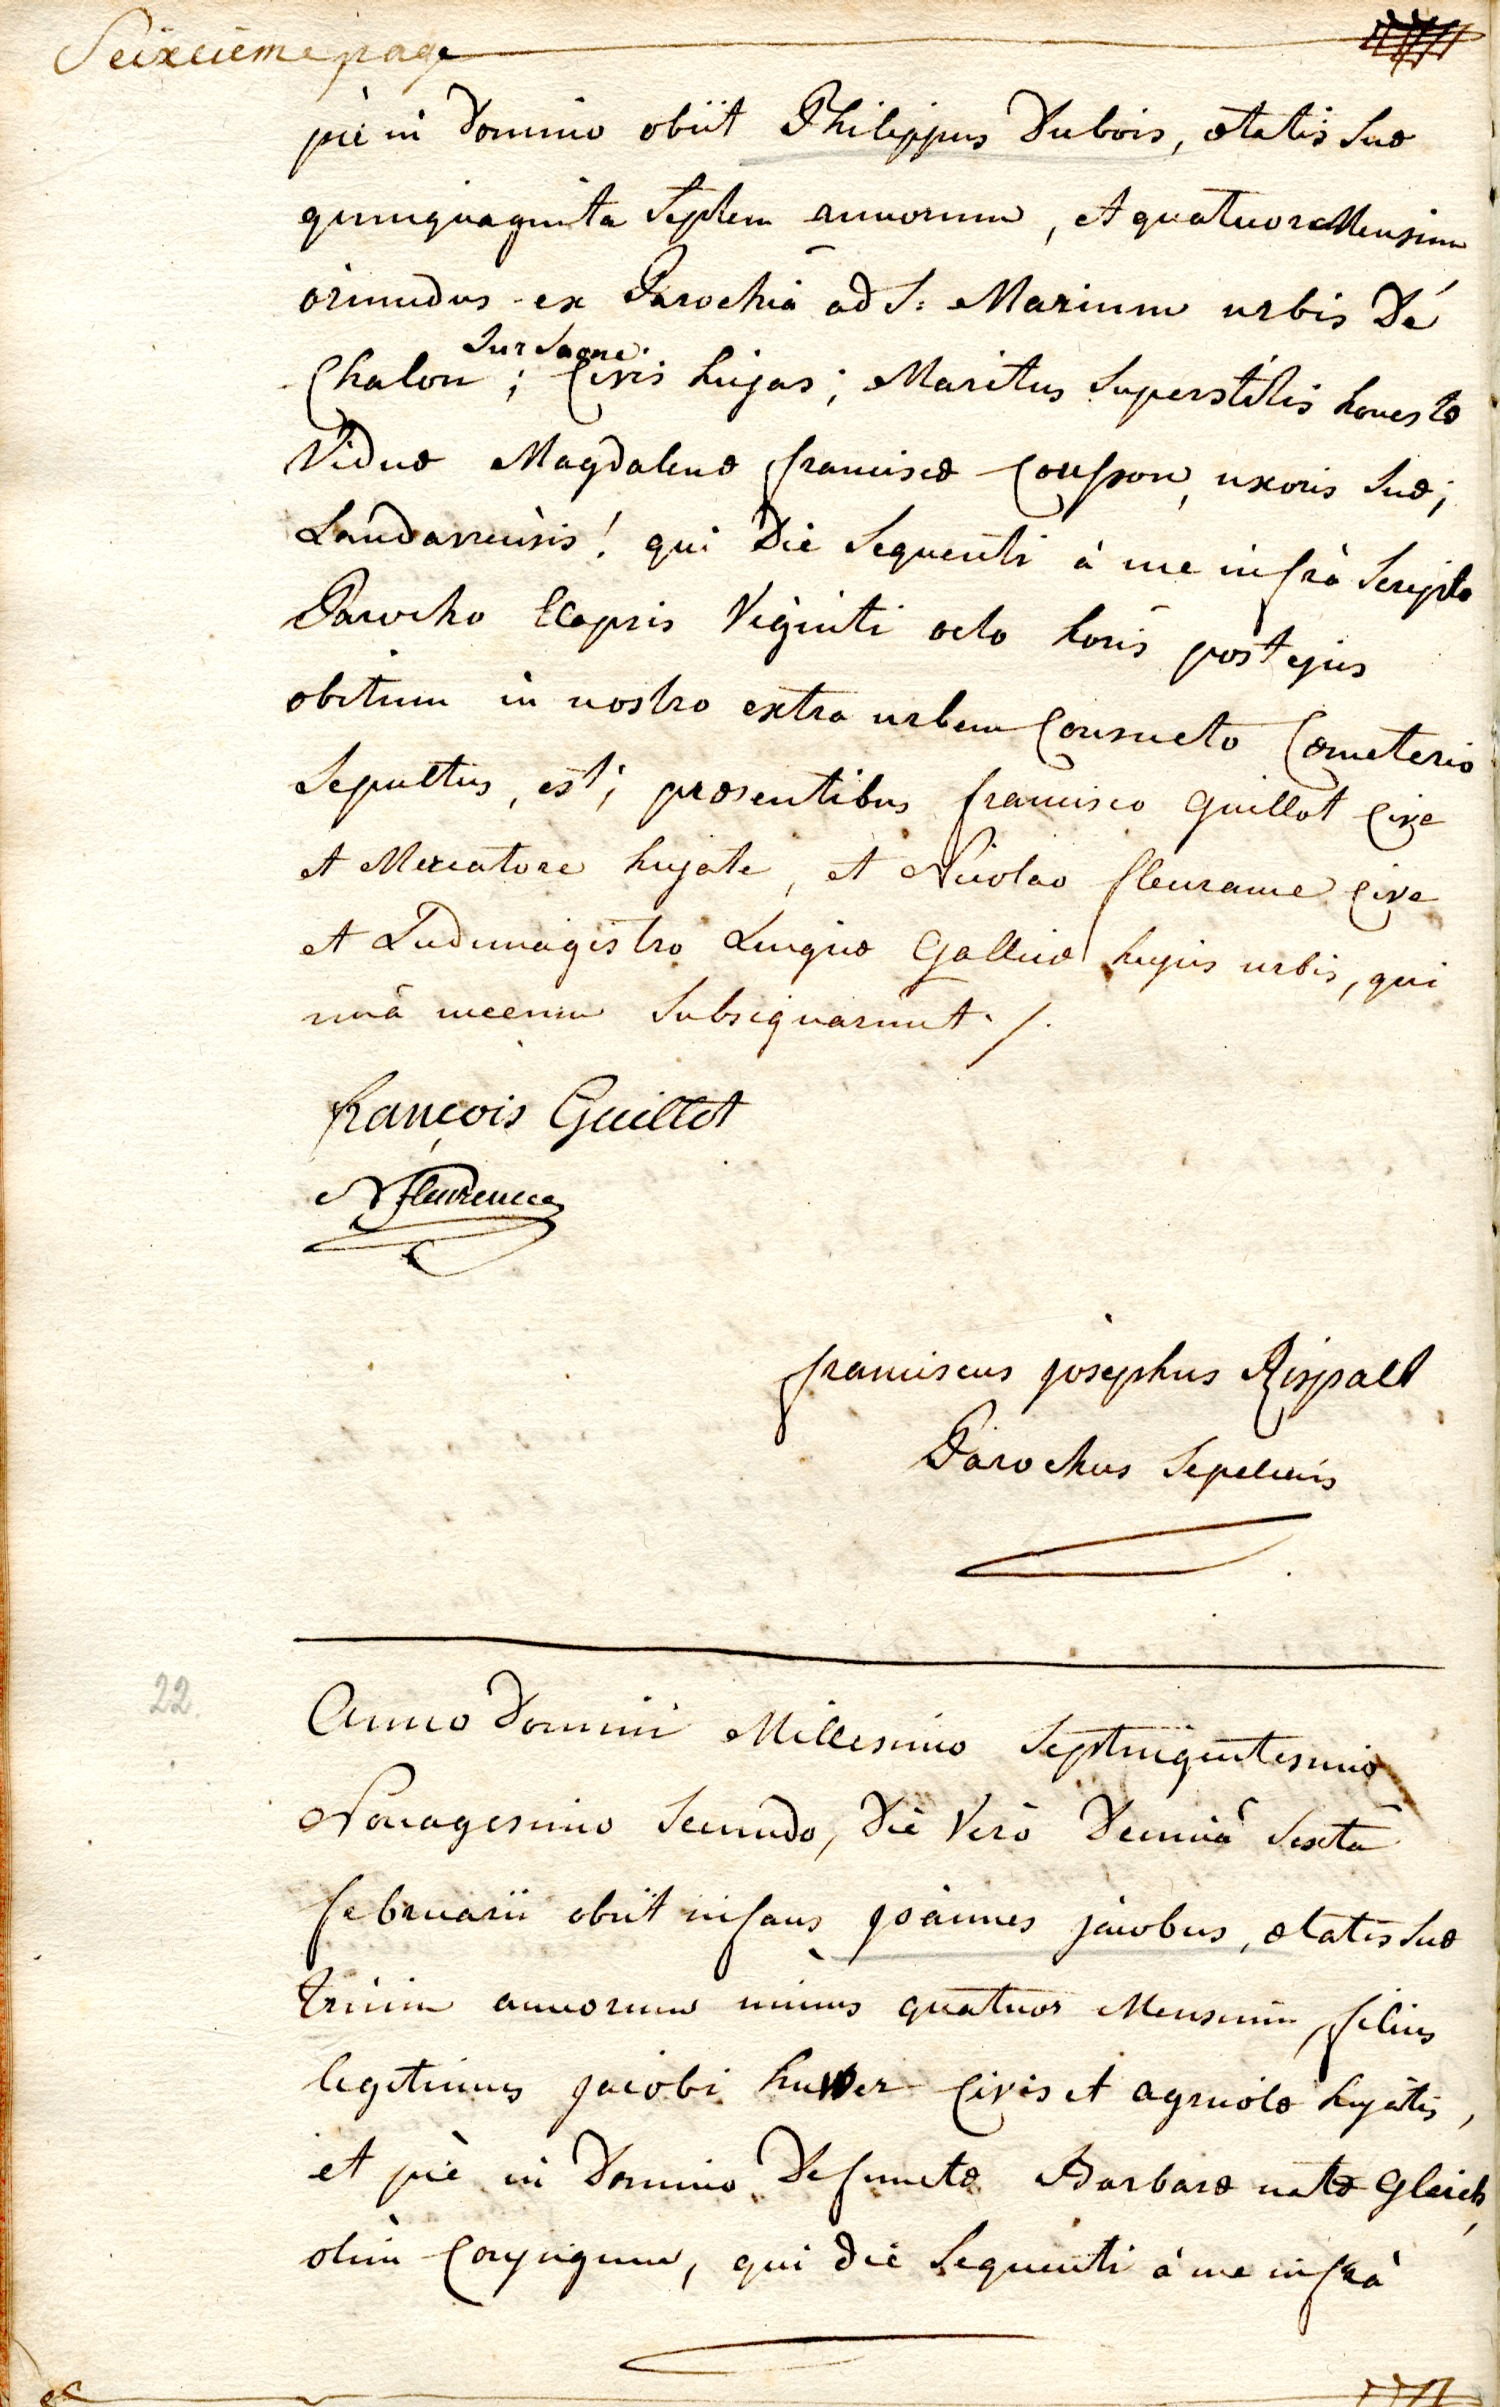 Seixcieme page
piè in Domino obiit Philippus Dubois, ætatis suæ
quinquaginta septem annorum, et quatuor Mensium
oriundus ex Parochiâ ad S: Marium urbis De
Sur Saone
Chalon; Civis hujas; Maritus superstitis honestæ
Viduæ Magdalenæ franciscæ Cousson, uxoris suæ;
Landaviensis! qui Die sequenti à me infrà scripto
Parocho Elapsis Viginti octo horis post ejus
obitum in nostro extra urbem Consueto Cœmeterio
sepultus, est; præsentibus francisco Guillot Cive
et Mercatore hujate, et Nicolao fleurance Cive
et Ludimagistro Linguæ Gallicæ hujus urbis, qui
unà mecum subsignarunt ./.
françois Guillot
N fleurence
franciscus josephus Rispalt
Parochus sepeliens
22.
Anno Domini Millesimo septingentesimo
Nonagesimo secundo, Die Verò Decimâ sextâ
februarii obiit infans joannes jacobus, ætatis suæ
trium annorum minus quatuor Mensium, filius
legitimus jacobi huver Civis et agricolæ hujatis,
et piè in Domino Defunctæ Barbaræ natæ Gleich,
olim Conjugum, qui die sequenti à me infrà